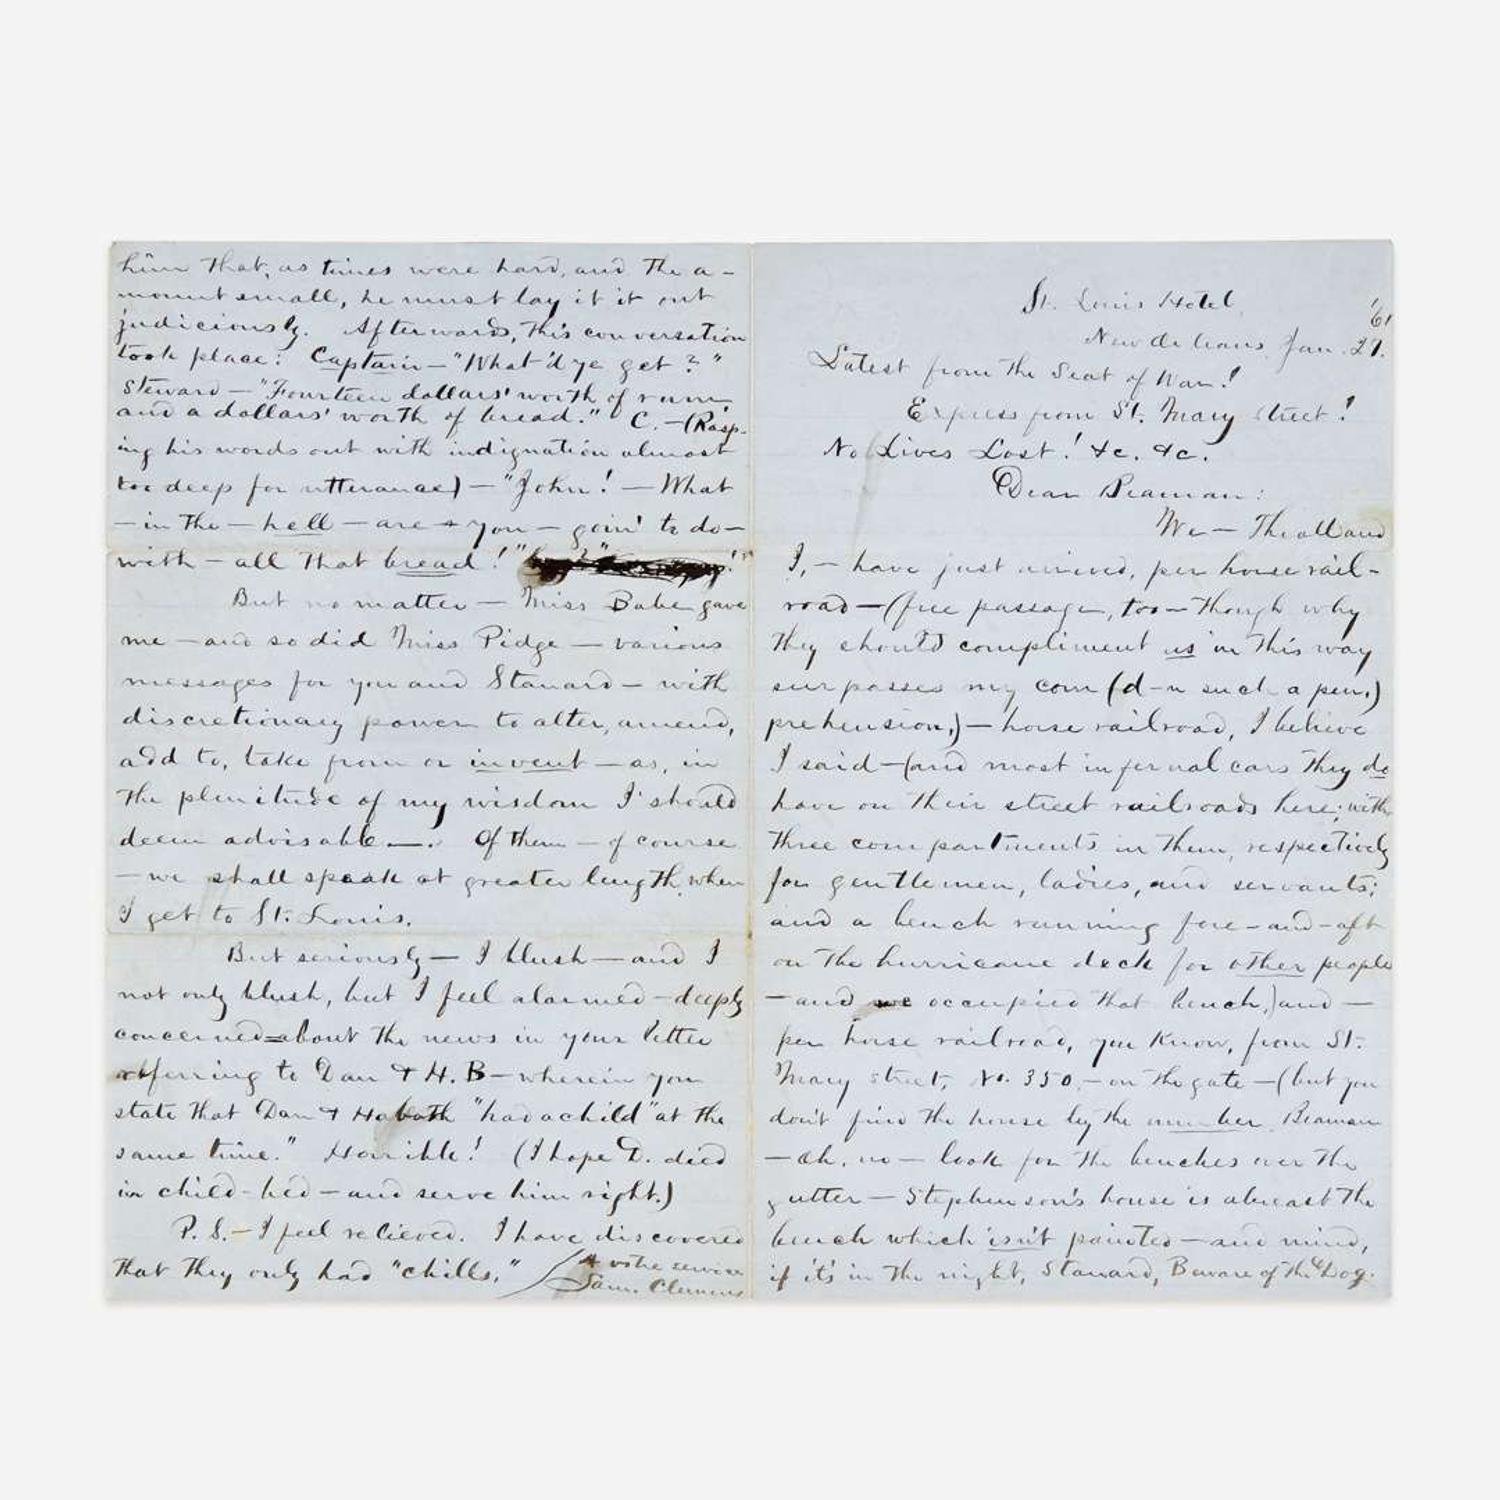 him that, as times were hard, and the a-
mount small, he must lay it it out
judiciously. Afterwards, this conversation
took place: Captain—"What'd ye get?"
Steward—"Fourteen dollars' worth of rum,
and a dollars' worth of bread." C.—(Rasp-
ing his words out with indignation almost
too deep for utterance)—"John!—What
—in the—hell—are you—goin' to do—
with—all that bread!"
But no matter—Miss Babe gave
me—and so did Miss Pidge—various
messages for you and Stanard—with
discretionary power to alter, amend,
add to, take from or invent—as, in
the plenitude of my wisdom I should
deem advisable—. Of them—of course
—we shall speak at greater length, when
I get to St. Louis.
But seriously—I blush—and I
not only blush, but I feel alarmed—deeply
concerned=about the news in your letter
referring to Dan & H.B—wherein you
state that Dan & Hobath "had a child" at the
same time." Horrible! (I hope D. died
in child-bed—and serve him right.)
P.S.—I feel relieved. I have discovered
that they only had "chills."
A votre service
Sam. Clemens
St. Louis Hotel,
New Orleans, Jan. 29. '61
Latest from the Seat of War!
Express from St. Mary street!
No Lives Lost! &c. &c.
Dear Beaman:
We—Theall and
I,—have just arrived, per horse rail-
road—(free passage, too—though why
they should compliment us in this way
surpasses my com (d—n such a pen,)
prehension,)—horse railroad, I believe
I said—(and most infernal cars they do
have on their street railroads here; with
three compartments in them, respectively
for gentlemen, ladies, and servants;
and a bench running fore-and-aft
on the hurricane deck for other people
—and we occupied that bench,) and—
per horse railroad, you know, from St.
Mary street, No. 350,—on the gate—(but you
don't find the house by the number, Beaman
—oh, no—look for the benches over the
gutter—Stephenson's house is abreast the
bench which isn't painted—and mind,
if it's in the night, Stanard, Beware of the Dog.